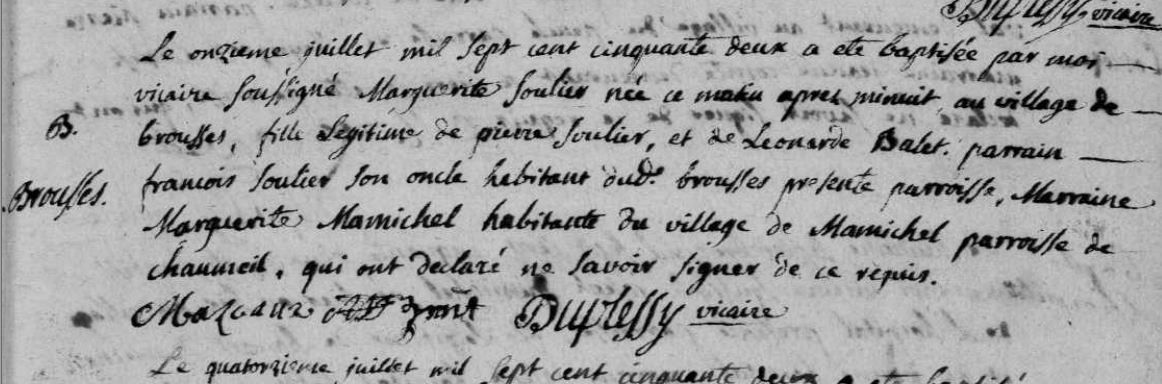 Duplessy, vicaire
Le onzieme juillet mil sept cent cinquante deux a ete baptisée par moi
vicaire soussigné Marguerite Soulier née ce matin apres minuit au village de
B.
brousses, fille Legitime de pierre Soulier, et de Leonarde Balet. parrain
Brousses.
francois Soulier son oncle habitant dud. brousses presente parroisse, Marraine
Marguerite Mamichel habitante du village de Mamichel parroisse de
chaumeil, qui ont declaré ne savoir signer de ce requis.
Duplessy vicaire
Le quatorzieme juillet mil sept cent cinquante deux a ete